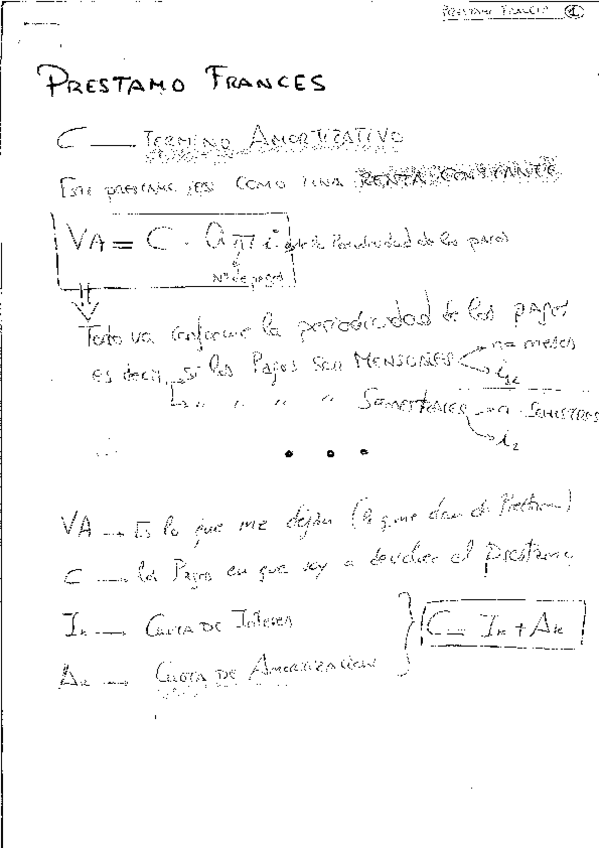 PRESTAMO FRANCES ①
PRESTAMO FRANCES
C — TERMINO AMORTIZATIVO
Este prestamo es COMO UNA RENTA CONSTANTE
VA = C · a n i de la Periodicidad de los pagos
Nº de pagos
Todo va conforme la periodicidad de los pagos
es decir, si los Pagos son MENSUALES → n = meses
i₁₂
" " " " SEMESTRALES → n SEMESTRES
i₂
• • •
VA → Es lo que me dejan (lo q me dan del Prestamo)
C — los Pagos en que voy a devolver el Prestamo
Iₖ — CUOTA DE Interes
Aₖ — CUOTA DE AMORTIZACION
C = Iₖ + Aₖ